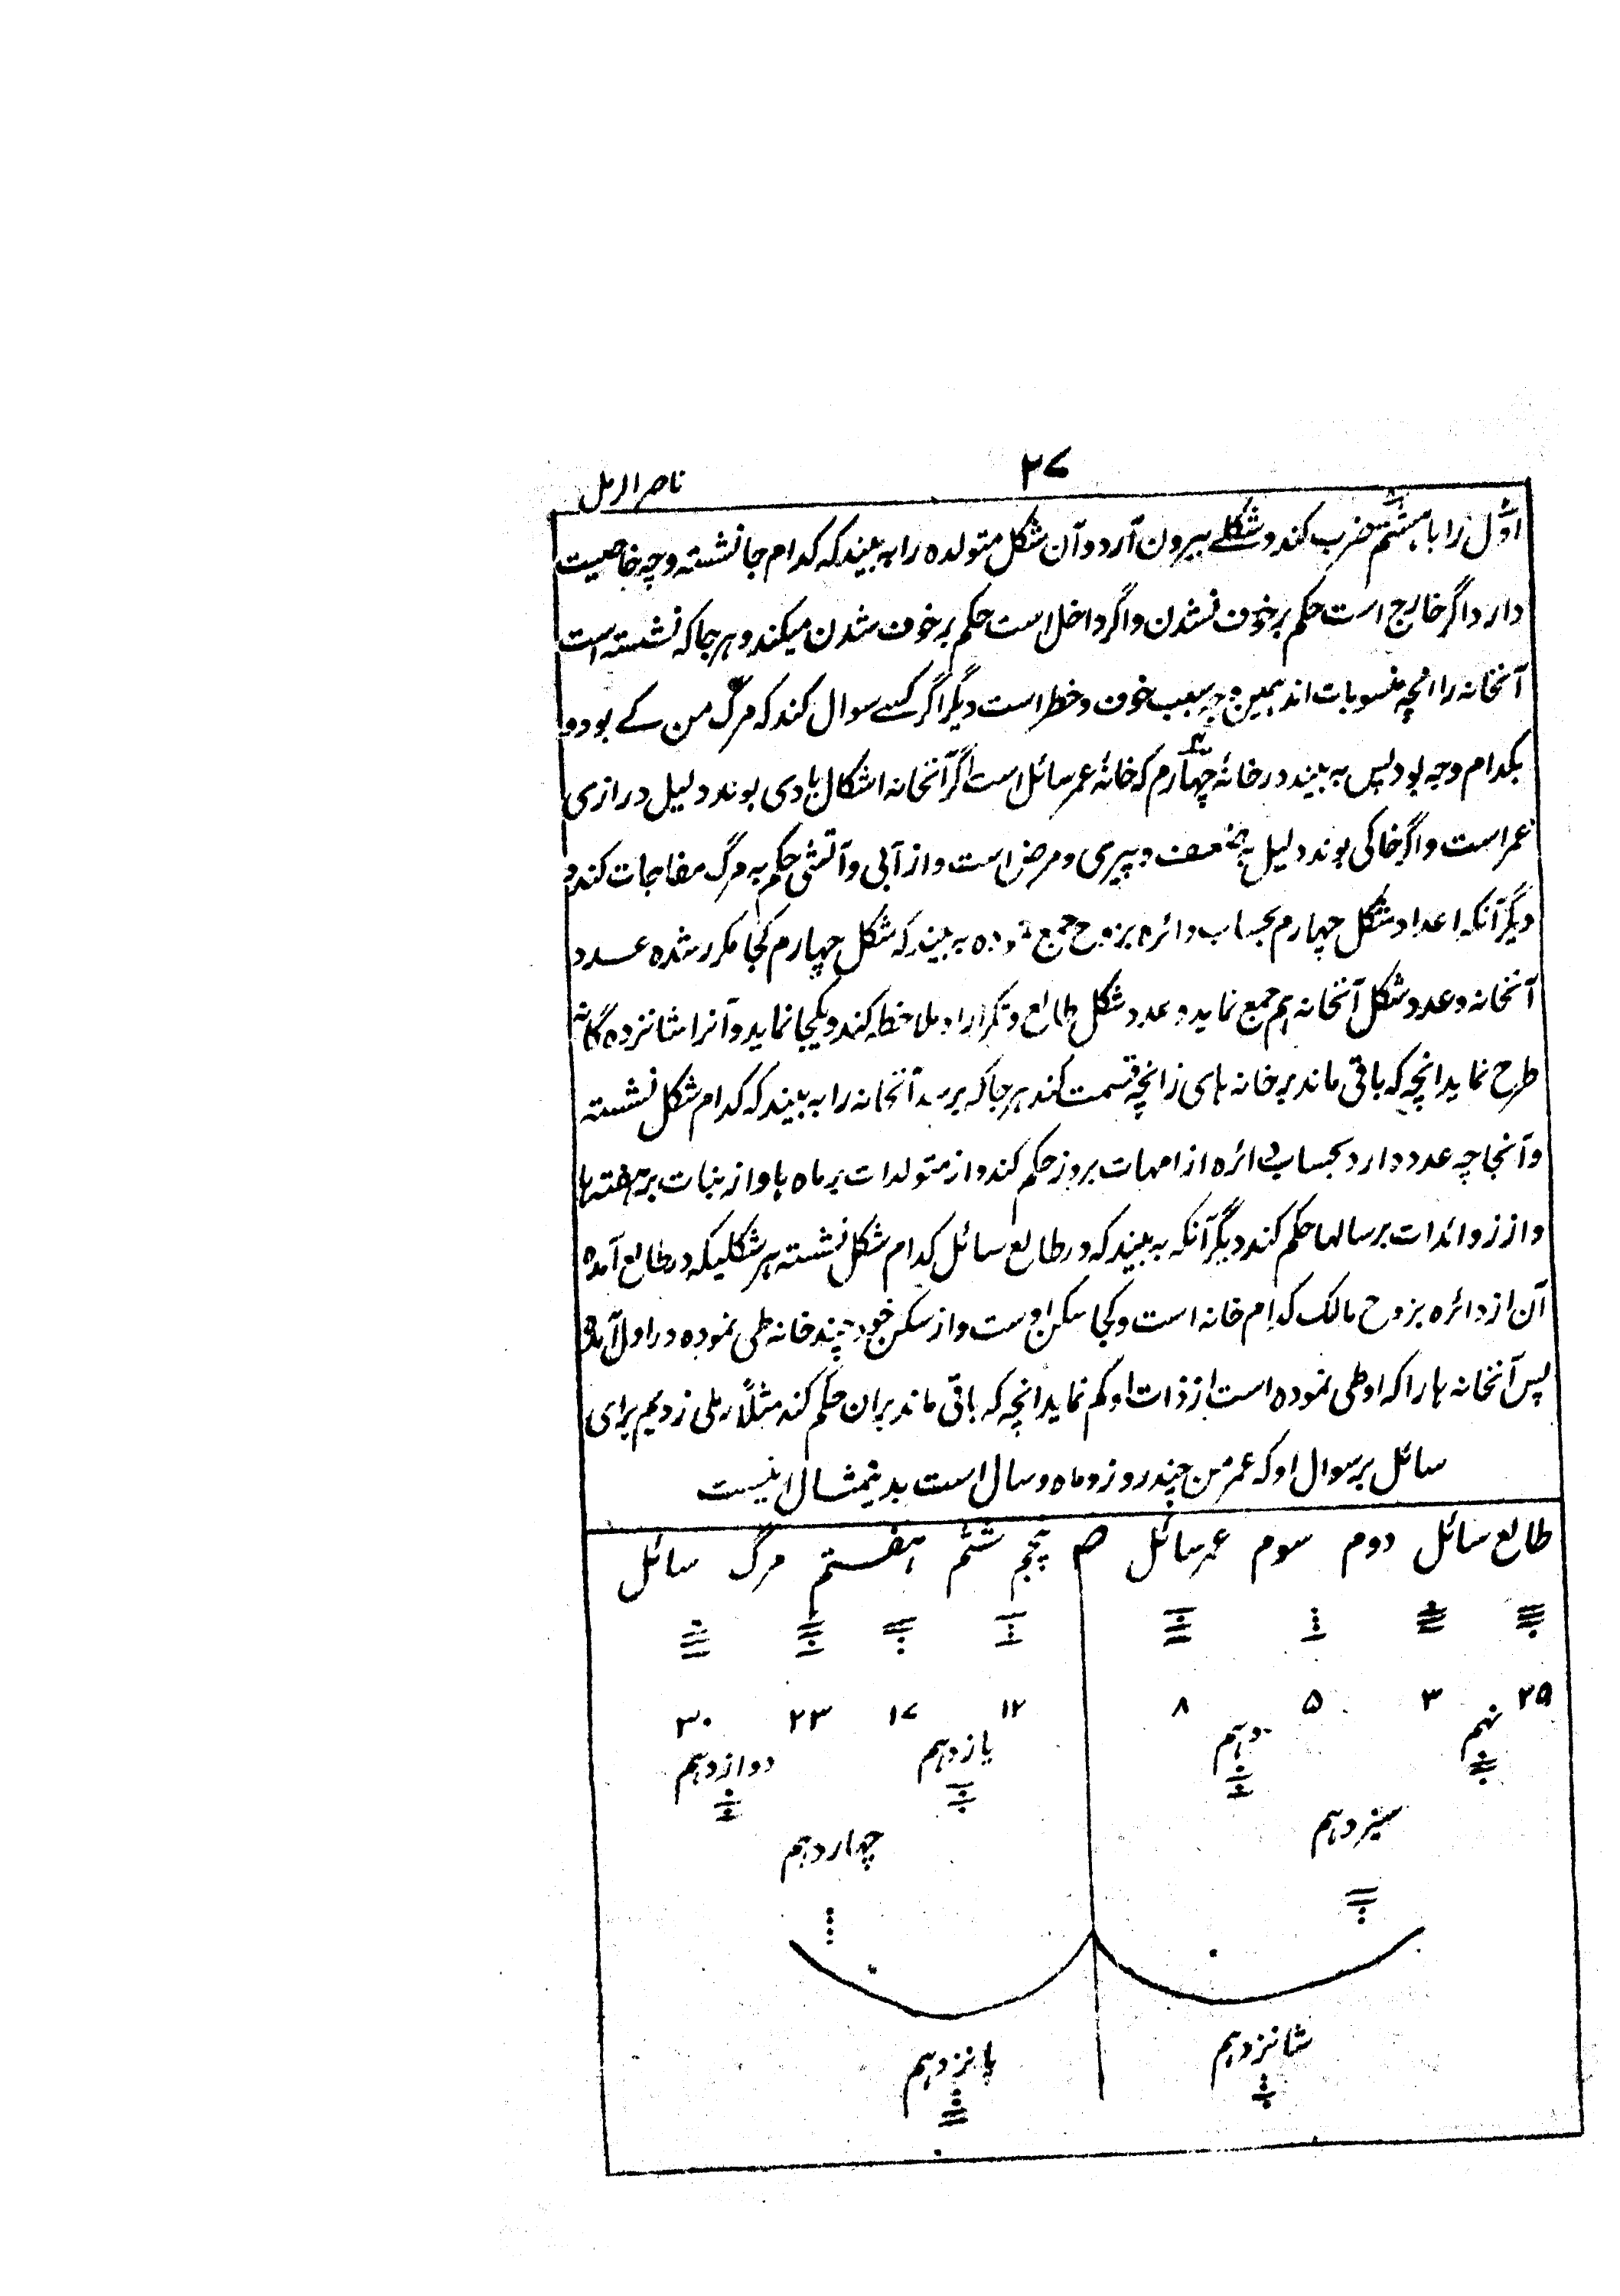 ۲۷
ناصر الرمل
اول را با هشتم ضرب کند و شکلے بیرون آرد و آن شکل متولده را به بیند که کدام جا نشسته و چه خاصیت
دارد اگر خارج است حکم بر خوف نشدن و اگر داخل است حکم بر خوف شدن میکند و هر جا که نشسته است
آنخانه را انچه منسوبات اند بهمین وجه سبب خوف و خطر است دیگر اگر کسے سوال کند که مرگ من کے بود و
بکدام وجه بود پس به بیند در خانهٔ چهارم که خانهٔ عمر سائل است اگر آنخانه اشکال بادی بوند دلیل درازی
عمر است و اگر خاکی بوند دلیل بضعف و پیری و مرض است و از آبی و آتشی حکم به مرگ مفاجات کند و
دیگر آنکه اعداد شکل چهارم بحساب دائره بزوح جمع نموده به بیند که شکل چهارم کجا مکرر شده عدد
آنخانه و عدد شکل آنخانه هم جمع نماید و عدد شکل طالع و تکرار او ملاحظه کند و یکجا نماید و آنرا شانزده گانه
طرح نماید انچه که باقی ماند بر خانه های زانچه قسمت کند هر جا که برسد آنخانه را به بیند که کدام شکل نشسته
و آنجا چه عدد دارد بحساب دائره از امهات بروز حکم کند و از متولدات بر ماه ها و از بنات بر هفته ها
و از زوائدات بر سالها حکم کند دیگر آنکه به بیند که در طالع سائل کدام شکل نشسته هر شکلیکه در طالع آمده
آن از دائره بزوح مالک کدام خانه است و کجا سکن اوست و از سکن خود چند خانه طی نموده در اول آمده
پس آنخانه ها را که او طی نموده است از ذات او کم نماید انچه که باقی ماند بران حکم کند مثلاً رملی زدیم برای
سائل بر سوال او که عمر من چند روز و ماه و سال است بدینمثال اینست
طالع سائل دوم سوم عمر سائل ص پنجم ششم هفتم مرگ سائل
۲۵ ۳ ۵ ۸ ۱۲ ۱۷ ۲۳ ۳۰
نهم دهم یازدهم دوازدهم
سیزدهم چهاردهم
شانزدهم پانزدهم